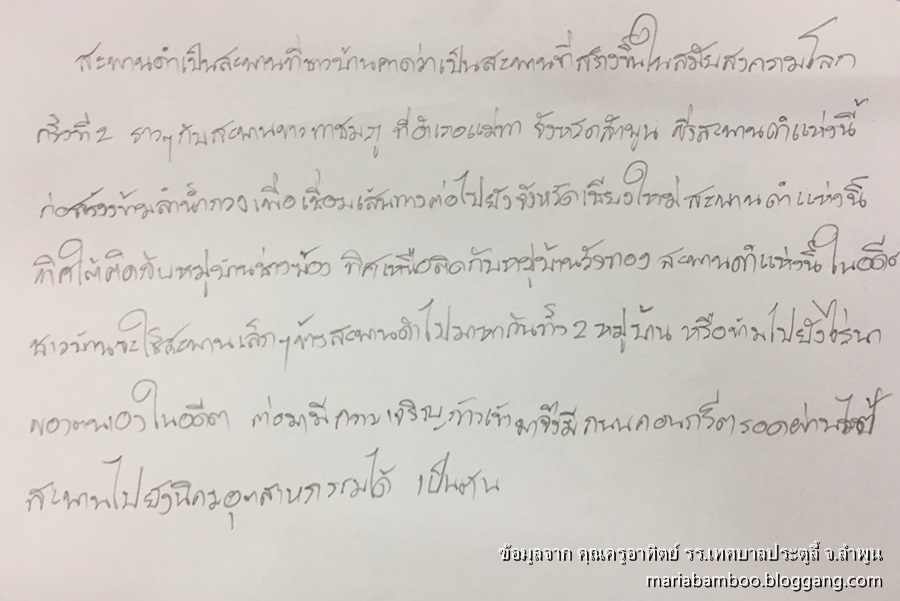 สะพานดำเป็นสะพานที่ชาวบ้านคาดว่าเป็นสะพานที่สร้างขึ้นในสมัยสงครามโลก
ครั้งที่ 2 ราวๆกับสะพานขาวทาชมภู ที่อำเภอแม่ทา จังหวัดลำพูน ซึ่งสะพานดำแห่งนี้
ก่อสร้างข้ามลำน้ำกวงเพื่อเชื่อมเส้นทางต่อไปยังจังหวัดเชียงใหม่ สะพานดำแห่งนี้
ทิศใต้ติดกับหมู่บ้าน ทิศเหนือติดกับหมู่บ้านวังทอง สะพานดำแห่งนี้ในอดีต
ชาวบ้านจะใช้สะพานเล็กๆข้างสะพานดำไปมาหากันทั้ง 2 หมู่บ้าน หรือข้ามไปยังไร่นา
ของตนเองในอดีต ต่อมามีความเจริญก้าวเข้ามาจึงมีถนนคอนกรีตรอดผ่านใต้
สะพานไปยังนิคมอุตสาหกรรมได้ เป็นต้น
ข้อมูลจาก คุณครูอาทิตย์ รร.เทศบาลประตูลี้ จ.ลำพูน
mariabamboo.bloggang.com